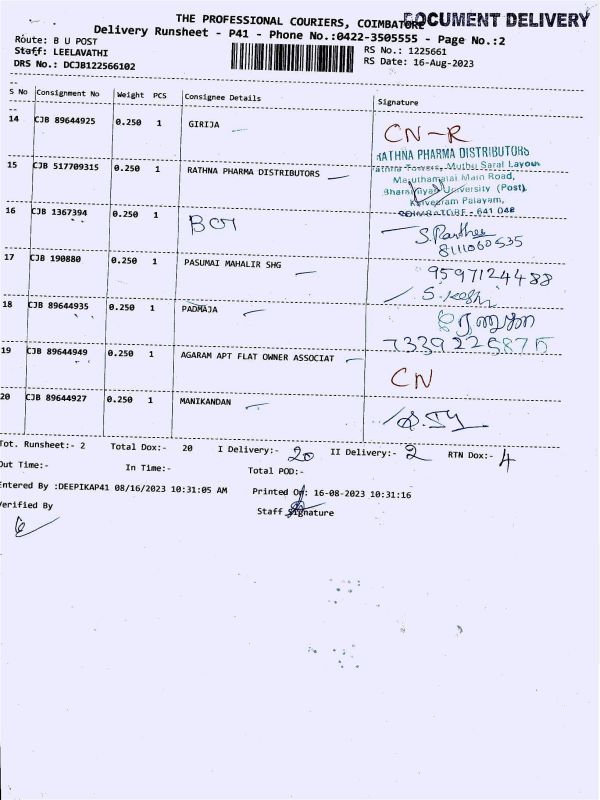 THE PROFESSIONAL COURIERS, COIMBATORE
DOCUMENT DELIVERY
Delivery Runsheet - P41 - Phone No.:0422-3505555 - Page No.:2
Route: B U POST
RS No.: 1225661
Staff: LEELAVATHI
RS Date: 16-Aug-2023
DRS No.: DCJB122566102
S No Consignment No Weight PCS Consignee Details Signature
14 CJB 89644925 0.250 1 GIRIJA CN-R
15 CJB 517709315 0.250 1 RATHNA PHARMA DISTRIBUTORS
RATHNA PHARMA DISTRIBUTORS
Rathna Towers, Muthu Saral Layout
Maruthamalai Main Road,
Bharathiyar University (Post),
Kalveeram Palayam,
COIMBATORE - 641 046
16 CJB 1367394 0.250 1 BOI
8111060535
17 CJB 190880 0.250 1 PASUMAI MAHALIR SHG 9597124488
18 CJB 89644935 0.250 1 PADMAJA
7339225875
19 CJB 89644949 0.250 1 AGARAM APT FLAT OWNER ASSOCIAT CN
20 CJB 89644927 0.250 1 MANIKANDAN
Tot. Runsheet:- 2 Total Dox:- 20 I Delivery:- 20 II Delivery:- 2 RTN Dox:- 4
Out Time:- In Time:- Total POD:-
Entered By :DEEPIKAP41 08/16/2023 10:31:05 AM Printed On: 16-08-2023 10:31:16
Verified By Staff Signature